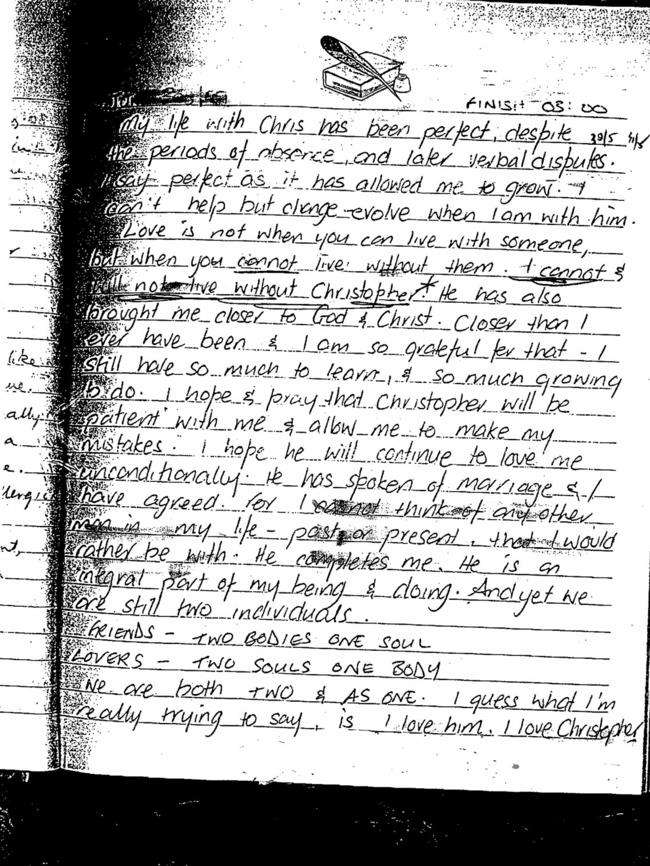 FINISH 03:00
my life with Chris has been perfect, despite 30/5
the periods of absence, and later verbal disputes.
I say perfect as it has allowed me to grow. I
can't help but change-evolve when I am with him.
Love is not when you can live with someone,
but when you cannot live without them. I cannot &
will not live without Christopher* He has also
brought me closer to God & Christ. Closer than I
ever have been & I am so grateful for that - I
like still have so much to learn, & so much growing
to do. I hope & pray that Christopher will be
ally patient with me & allow me to make my
a mistakes. I hope he will continue to love me
e. unconditionally. He has spoken of marriage & I
have agreed. for I cannot think of any other
man in my life - past or present, that I would
rather be with. He completes me. He is an
integral part of my being & doing. And yet we
are still two individuals.
FRIENDS - TWO BODIES ONE SOUL
LOVERS - TWO SOULS ONE BODY
We are both TWO & AS ONE. I guess what I'm
really trying to say, is I love him. I love Christopher